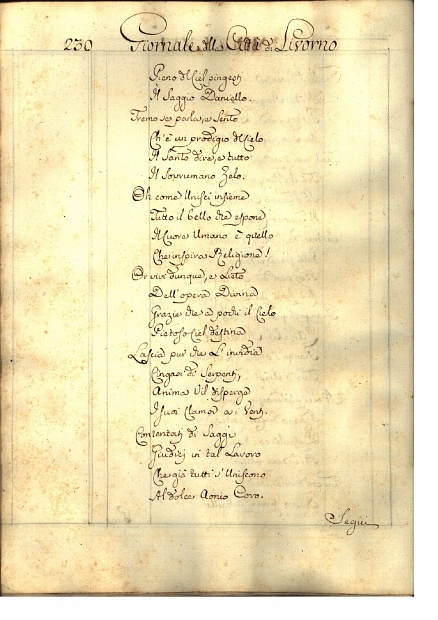 230 Giornale della Città di Livorno
Pieno di Ciel pingesti
Il Saggio Daniello.
Tremo se parla, e sento
Ch'è un prodigio di Cielo
Il Santo dire, e tutto
Il Sovrumano Zelo.
Oh come Unisci insieme
Tutto il bello che espone
Il Cuore Umano è quello
Che inspira Religione!
Or vivi dunque, e Lieto
Dell'opera Divina
Grazie che a pochi il Cielo
Pietoso Ciel destina
Lascia pur che L'invidia
Cinga di Serpenti,
Anima Vil disperga
I suoi Clamori a' Venti.
Contentati di Saggi
Giudici in tal Lavoro
Che già tutti s'Uniscono
Al dolce Aonio Coro.
Segue